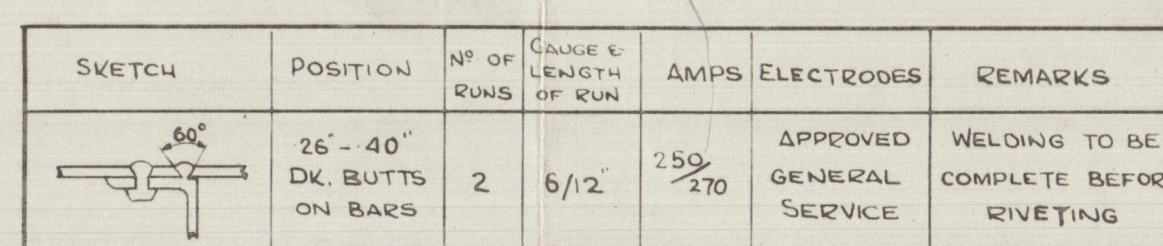 SKETCH
POSITION
Nº OF
RUNS
GAUGE &
LENGTH
OF RUN
AMPS
ELECTRODES
REMARKS
60°
·26" - ·40"
DK. BUTTS
ON BARS
2
6/12"
250/270
APPROVED
GENERAL
SERVICE
WELDING TO BE
COMPLETE BEFOR
RIVETING